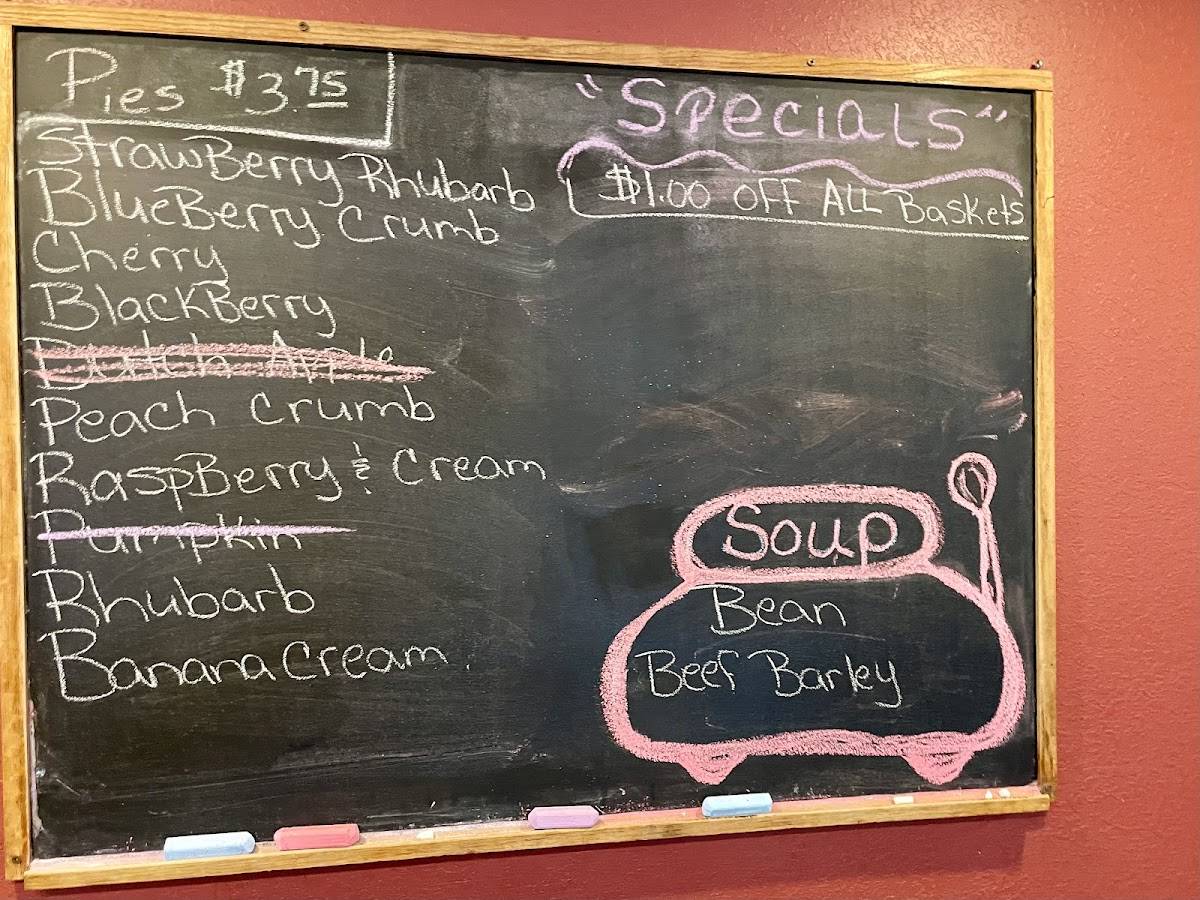 Pies $3.75
StrawBerry Rhubarb
BlueBerry Crumb
Cherry
BlackBerry
Dutch Apple
Peach Crumb
RaspBerry & Cream
Pumpkin
Rhubarb
Banana Cream
"Specials"
$1.00 OFF ALL Baskets
Soup
Bean
Beef Barley